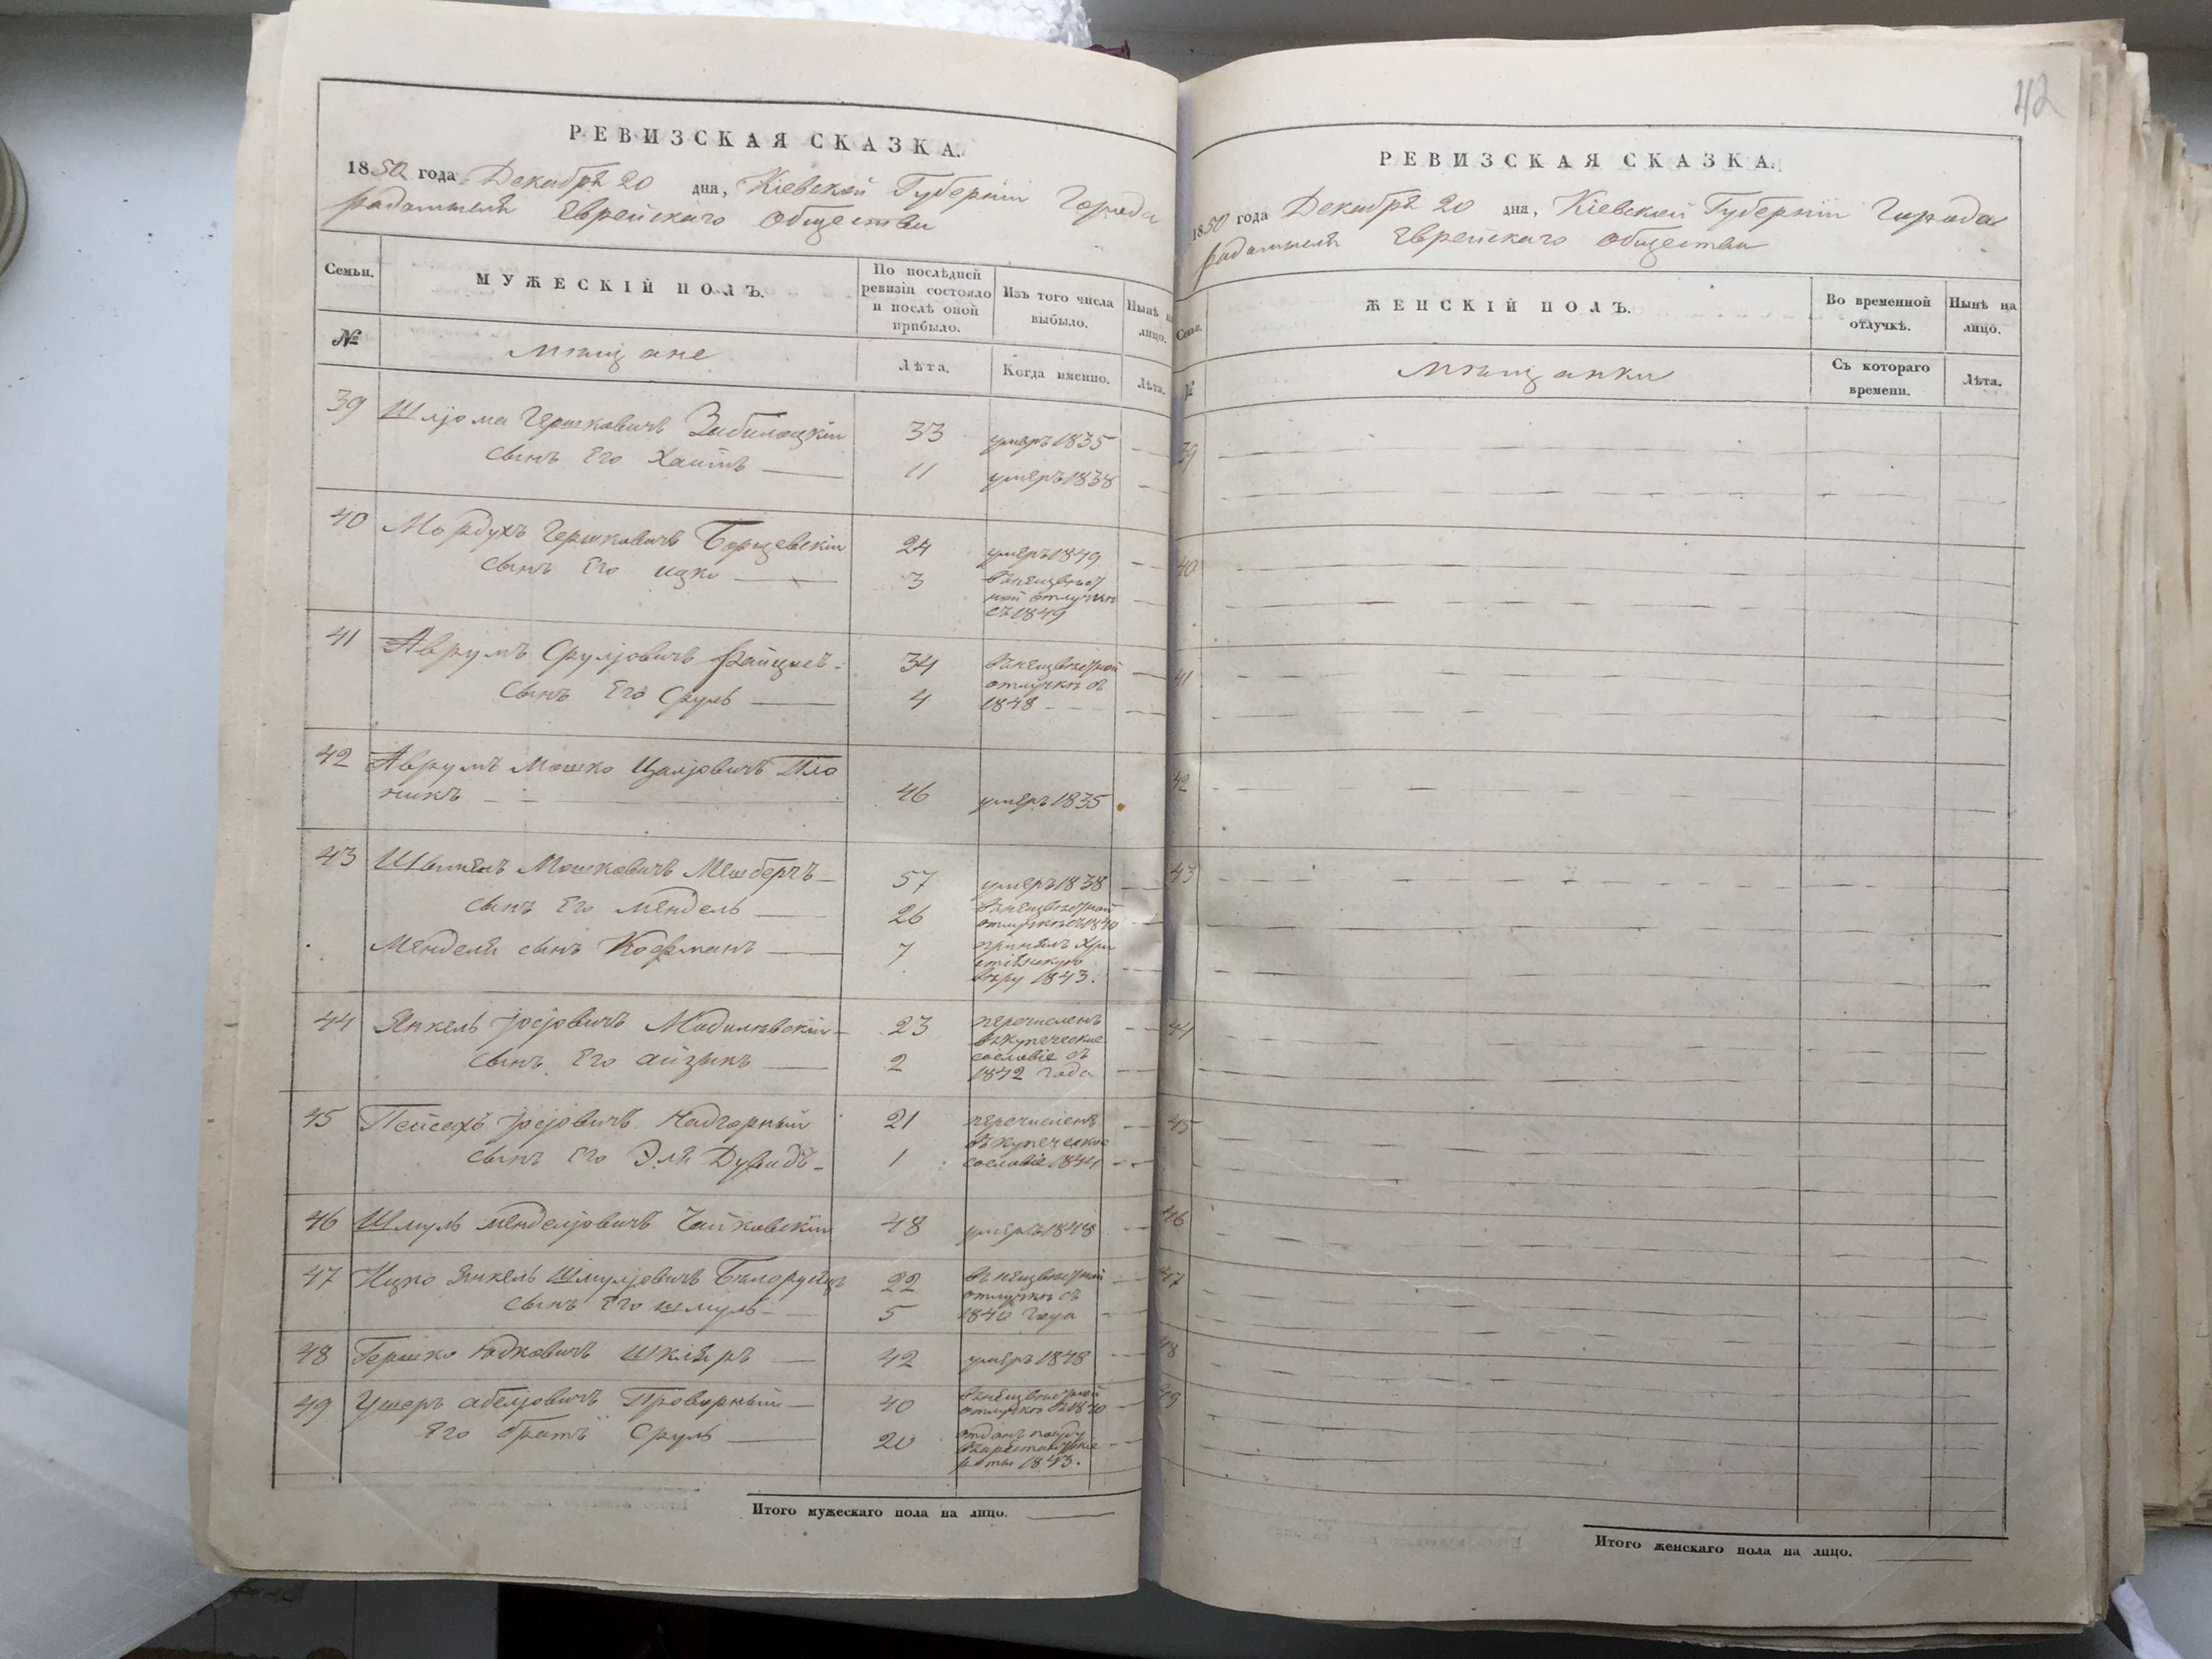 42
РЕВИЗСКАЯ СКАЗКА.
1850 года Декабря 20 дня, Кіевской Губерніи Города
Радомысля Еврейскаго Общества
Семьи.
МУЖЕСКІЙ ПОЛЪ.
По послѣдней ревизіи состояло и послѣ оной прибыло.
Изъ того числа выбыло.
Нынѣ на лицо.
№
мѣщане
Лѣта.
Когда именно.
Лѣта.
39 Шліома Гершковичъ Забилоцкій 33 умеръ 1835
сынъ Его Хаимъ 11 умеръ 1838
40 Мордухъ Гершковичъ Борщевскій 24 умеръ 1849
сынъ Его Ицко 3 въ неизвѣст
ной отлучкѣ
съ 1849
41 Аврумъ Сруліовичъ 34 въ неизвѣстной
отлучкѣ съ
сынъ Его Сруль 4 1848
42 Аврумъ Мошко Цаліовичъ Пло
никъ 46 умеръ 1835
43 Мошковичъ Мешберъ 57 умеръ 1838
сынъ Его Мендель 26 въ неизвѣстной
отлучкѣ съ 1840
Менделя сынъ Кофманъ 7 принялъ Хри
стіянскую
вѣру 1843.
44 Янкель Іосіовичъ 23 перечисленъ
въ купеческое
сословіе съ
сынъ Его Айзыкъ 2 1842 года
45 Пейсахъ Іосіовичъ Надгорный 21 перечисленъ
въ купеческое
сынъ Его Эля Дувидъ 1 сословіе 1844
46 Шмуль Менделіовичъ Чайковскій 48 умеръ 1848
47 Ицко Янкель Шмуліовичъ Бѣлоруецъ 22 въ неизвѣстной
отлучкѣ съ
сынъ Его Шмуль 5 1840 года
48 Гершко Юдковичъ Шкляръ 42 умеръ 1848
49 Ушеръ Абеліовичъ Проворный 40 въ неизвѣстной
отлучкѣ съ 1840
Его братъ Сруль 20 отданъ
въ арестантскіе
роты 1843.
Итого мужескаго пола на лицо.
РЕВИЗСКАЯ СКАЗКА.
1850 года Декабря 20 дня, Кіевской Губерніи Города
Радомысля Еврейскаго Общества
Семьи.
ЖЕНСКІЙ ПОЛЪ.
Во временной отлучкѣ.
Нынѣ на лицо.
№
мѣщанки
Съ котораго времени.
Лѣта.
39
40
41
42
43
44
45
46
47
48
49
Итого женскаго пола на лицо.